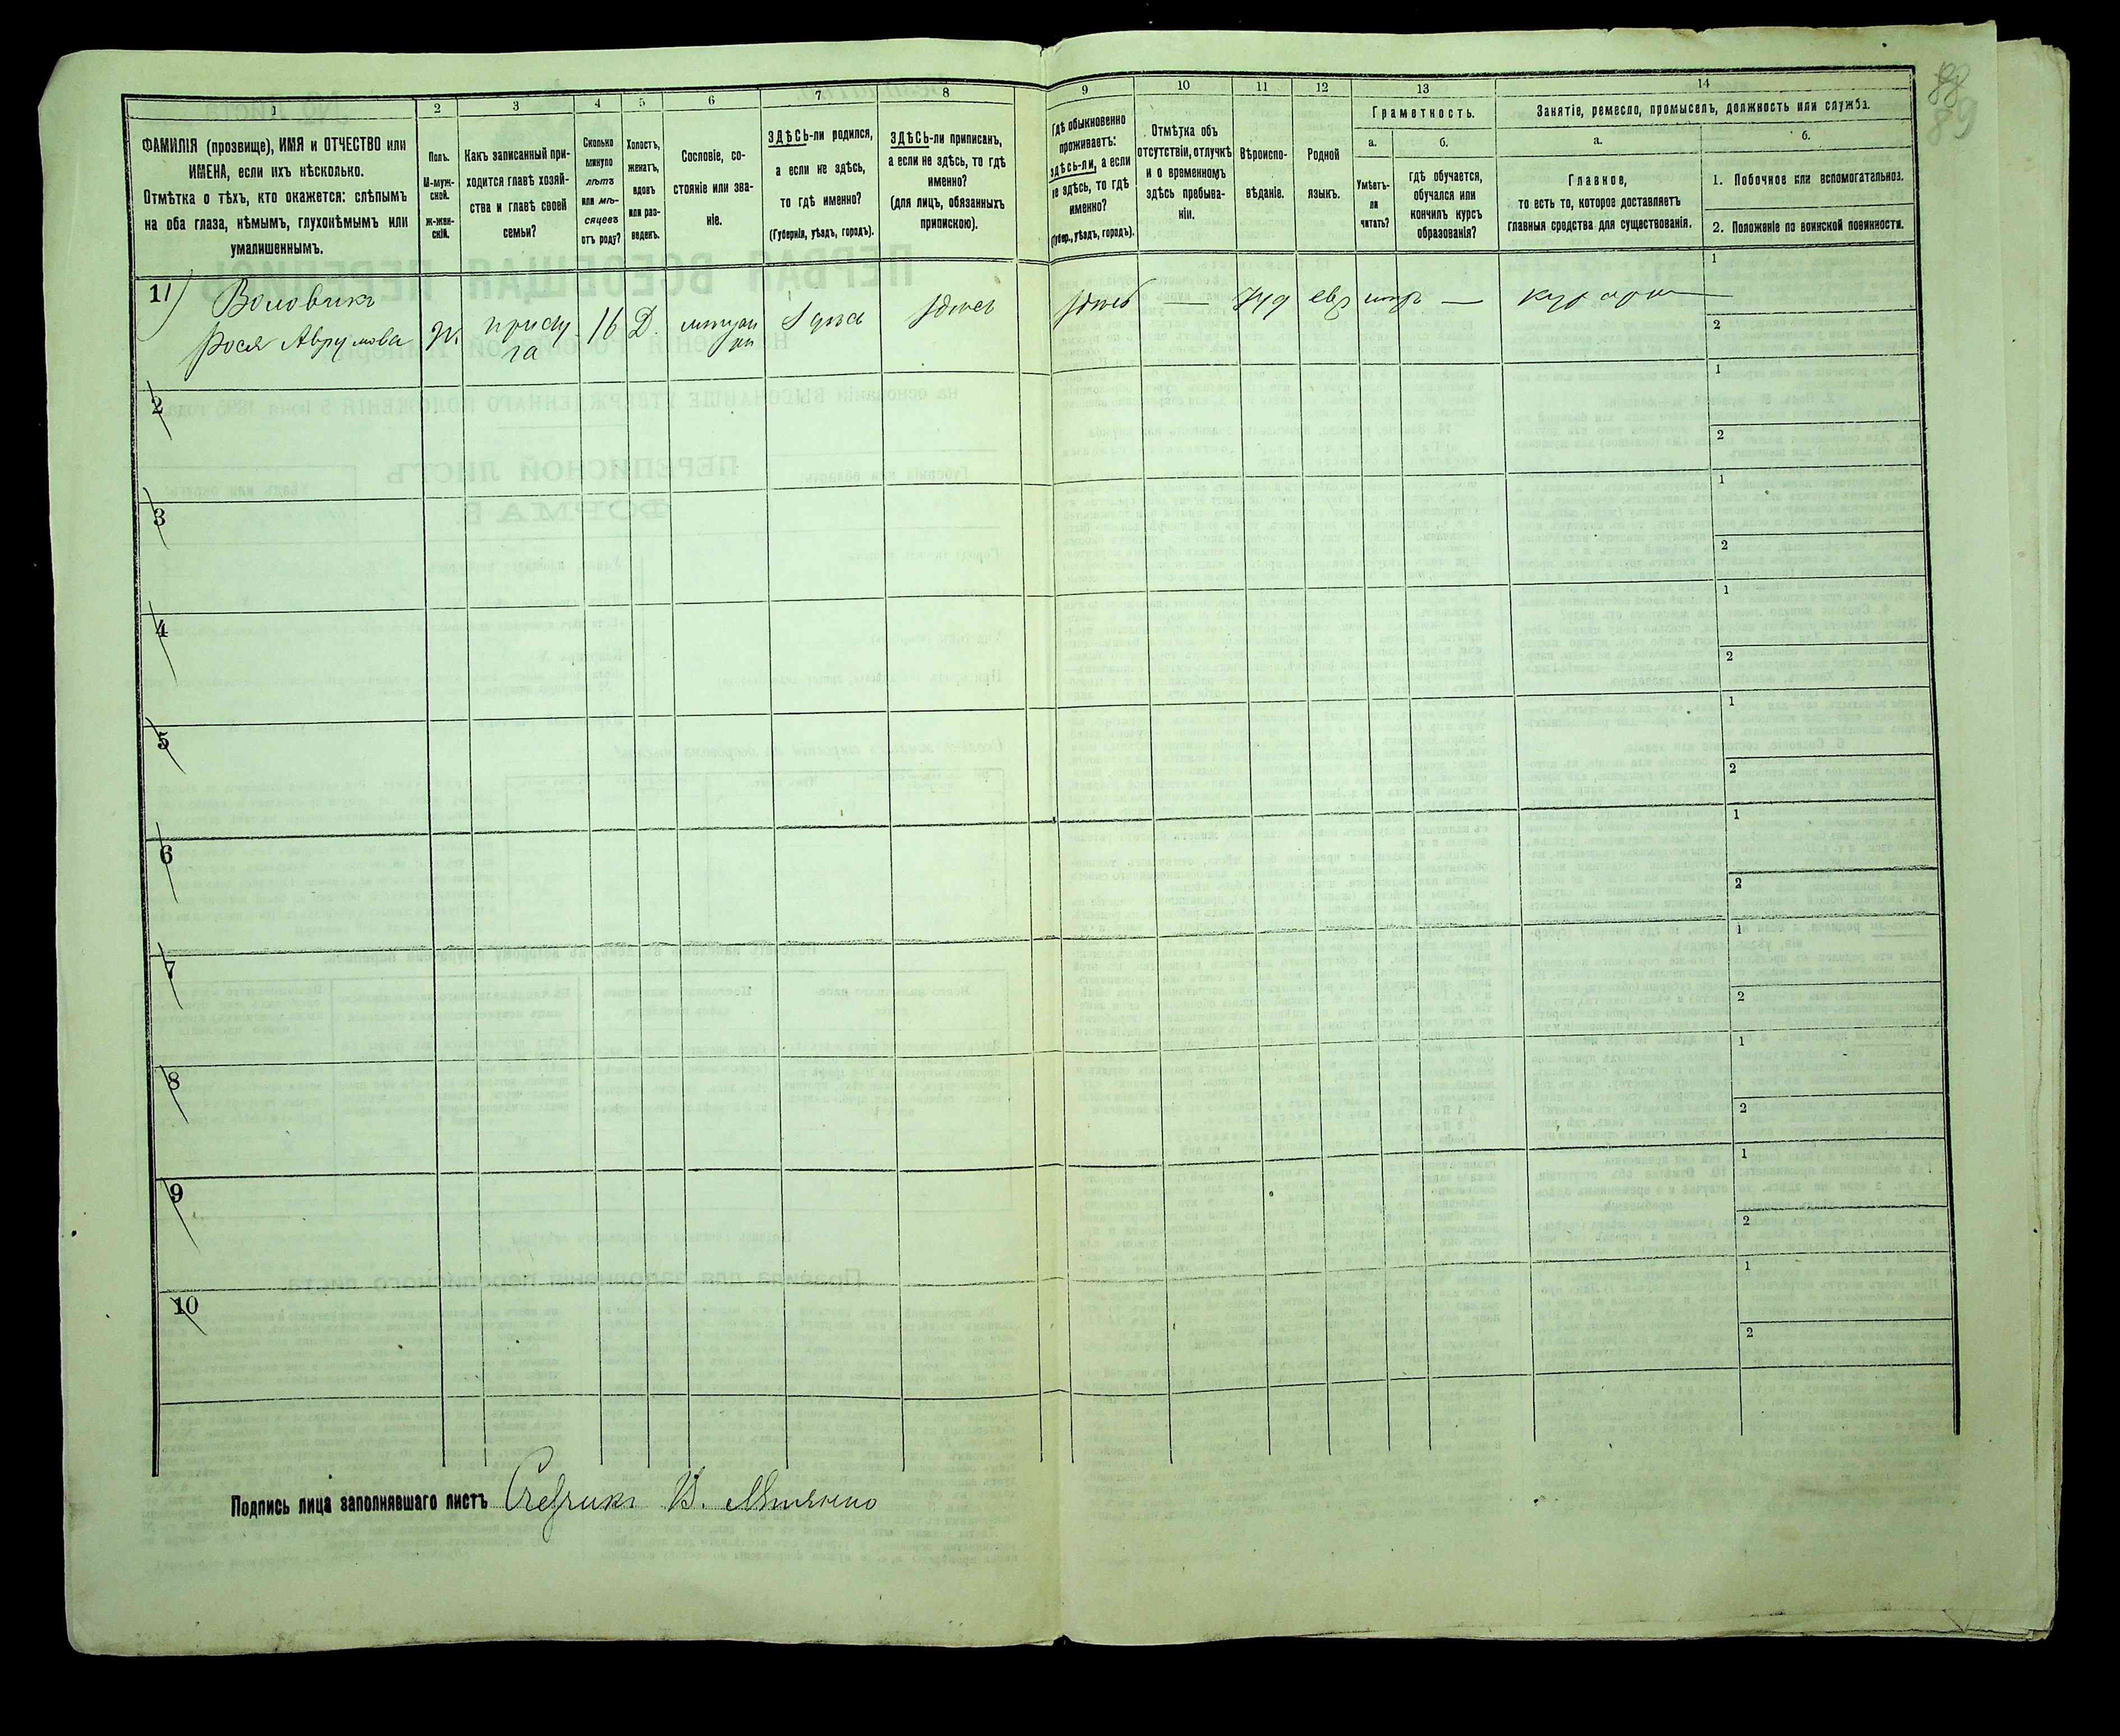 88
89
1 2 3 4 5 6 7 8 9 10 11 12 13 14
ФАМИЛІЯ (прозвище), ИМЯ и ОТЧЕСТВО или
ИМЕНА, если ихъ нѣсколько.
Отмѣтка о тѣхъ, кто окажется: слѣпымъ
на оба глаза, нѣмымъ, глухонѣмымъ или
умалишеннымъ.
Полъ.
М-муж-
ской.
Ж-жен-
скій.
Какъ записанный при-
ходится главѣ хозяй-
ства и главѣ своей
семьи?
Сколько
минуло
лѣтъ
или мѣ-
сяцевъ
отъ роду?
Холостъ,
женатъ,
вдовъ
или раз-
веденъ.
Сословіе, со-
стояніе или зва-
ніе.
ЗДѢСЬ-ли родился,
а если не здѣсь,
то гдѣ именно?
(Губернія, уѣздъ, городъ).
ЗДѢСЬ-ли приписанъ,
а если не здѣсь, то гдѣ
именно?
(для лицъ, обязанныхъ
припискою).
Гдѣ обыкновенно
проживаетъ:
здѣсь-ли, а если
не здѣсь, то гдѣ
именно?
(Губер., уѣздъ, городъ).
Отмѣтка объ
отсутствіи, отлучкѣ
и о временномъ
здѣсь пребыва-
ніи.
Вѣроиспо-
вѣданіе.
Родной
языкъ.
Грамотность.
а.
Умѣетъ-
ли
читать?
б.
Гдѣ обучается,
обучался или
кончилъ курсъ
образованія?
Занятіе, ремесло, промыселъ, должность или служба.
а.
Главное,
то есть то, которое доставляетъ
главныя средства для существованія.
б.
1. Побочное или вспомогательное.
2. Положеніе по воинской повинности.
1 Воловикъ
Рося Аврумова
ж. прислу
га 16 Д.
здѣсь
здѣсь
здѣсь — Іуд евр —
1
2
2
1
2
3
1
2
4
1
2
5
1
2
6
1
2
7
1
2
8
1
2
9
1
2
10
1
2
Подпись лица заполнявшаго листъ